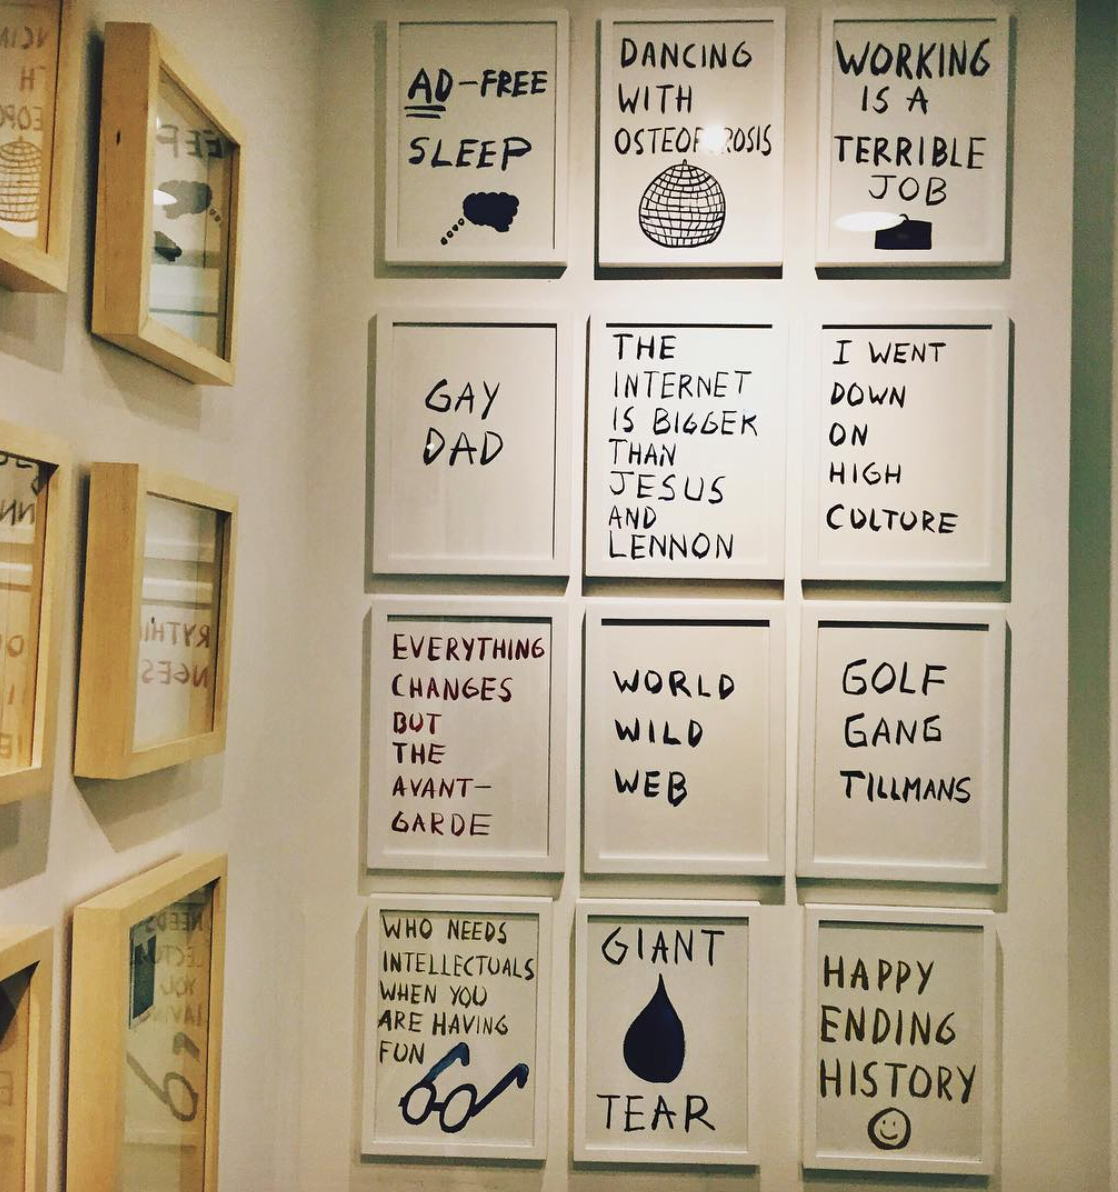 AD-FREE
SLEEP
DANCING
WITH
OSTEOPOROSIS
WORKING
IS A
TERRIBLE
JOB
GAY
DAD
THE
INTERNET
IS BIGGER
THAN
JESUS
AND
LENNON
I WENT
DOWN
ON
HIGH
CULTURE
EVERYTHING
CHANGES
BUT
THE
AVANT-
GARDE
WORLD
WILD
WEB
GOLF
GANG
TILLMANS
WHO NEEDS
INTELLECTUALS
WHEN YOU
ARE HAVING
FUN
GIANT
TEAR
HAPPY
ENDING
HISTORY